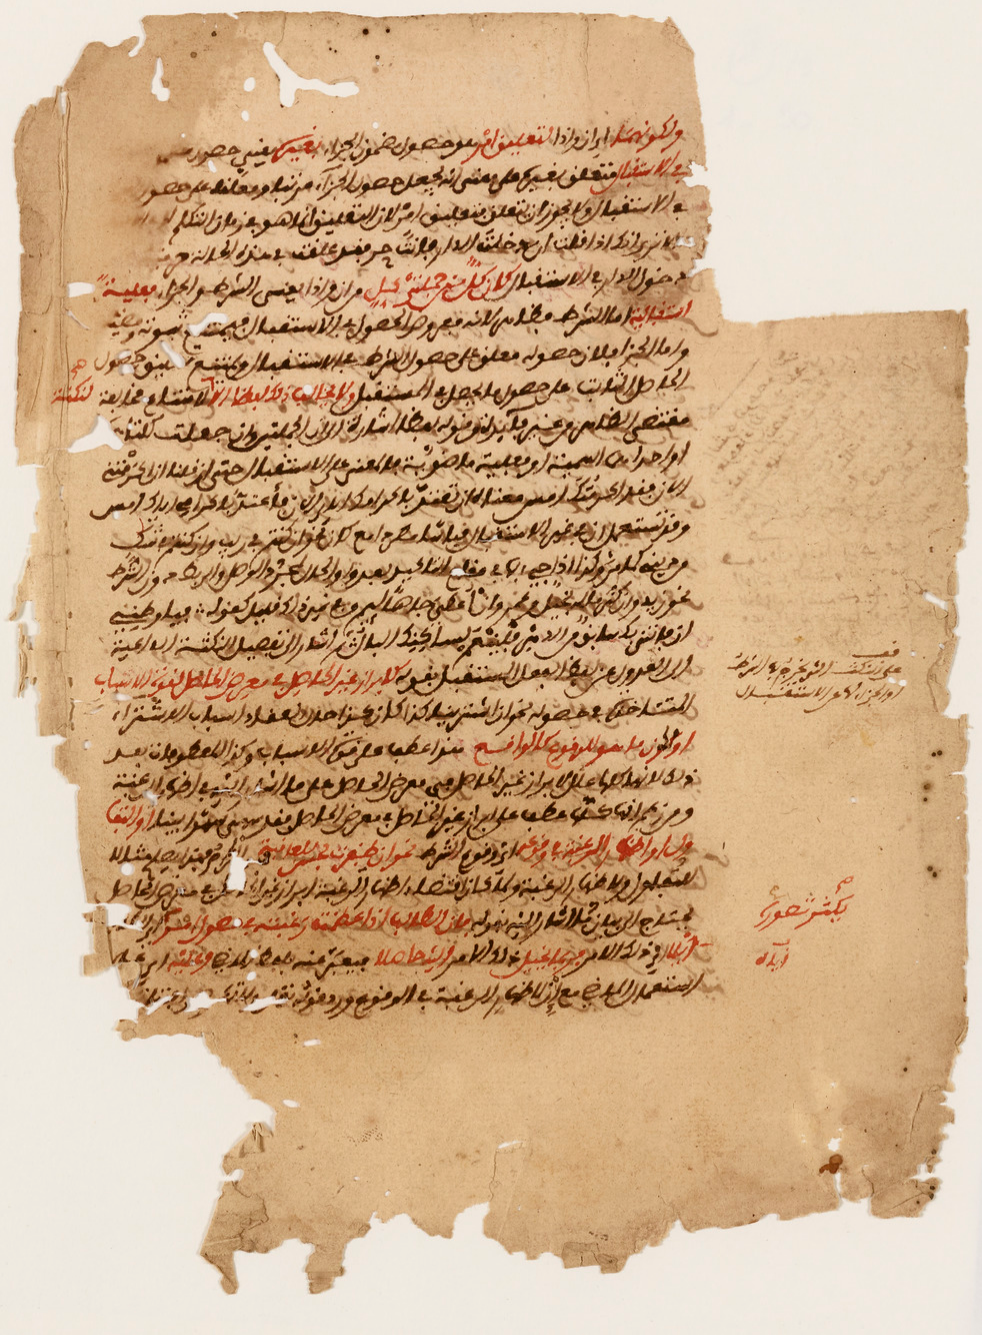 ولكونهما اي ان واذا لتعليق امر هو حصول مضمون الجزاء بغيره يعني حصول
في الاستقبال متعلق بغيره على معنى انه يجعل حصول الجزاء مرتبا ومعلقا على حصول
في الاستقبال ولا يجوز ان يتعلق بتعليق امر لان التعليق انما هو في زمان التكلم
الا ترى انك اذا قلت ان دخلت الدار فانت حر فقد علقت في هذه الحالة
دخول الدار في الاستقبال كان كل من جملتي كل من ان واذا يعنى الشرط والجزاء فعلية
استقبالية اما الشرط فظاهر لانه مفروض الحصول في الاستقبال فيمتنع ثبوته ومضيه
واما الجزاء فلان حصوله معلق على حصول الشرط في الاستقبال ويمتنع تعليق حصول
الحاصل الثابت على حصول ما يحصل في المستقبل ولا يخالف ذلك لفظا الا لامتناع مخالفة
لنكتة صح
مقتضى الظاهر من غير فايدة وقوله لفظا اشارة الى ان الجملتين وان جعلت كلتا
او احداهما اسمية او فعلية ماضوية فالمعنى على الاستقبال حتى ان قولنا ان اكرمتني
الان فقد اكرمتك امس معناه ان تعتد باكرامك اياي الان فاعتد باكرامي اياك امس
وقد تستعمل ان في غير الاستقبال قياسا مطردا مع كان نحو ان كنتم في ريب وان كنتم في شك
كما مر وكذا اذا جيء بها في مقام التاكيد بعد واو الحال لمجرد الوصل والربط دون الشرط
نحو زيد وان كثر ماله بخيل وعمرو وان اعطي جاها لئيم وفي غير ذلك قليل كقوله فيا وطني
ان فاتني بك سابق من الدهر فلينعم لساكنك البال ثم اشار الى تفصيل النكتة الداعية
الى العدول عن لفظ الفعل المستقبل بقوله كابراز غير الحاصل في معرض الحاصل لقوة الاسباب
المتاخذة في حصوله نحو ان اشترينا كذا كان كذا حال انعقاد اسباب الاشتراء
او كون ما هو للوقوع كالواقع هذا عطف على قوة الاسباب وكذا المعطوفات بعد
ذلك لانها كلها علل لابراز غير الحاصل في معرض الحاصل على ما اشار اليه في اظهار الرغبة
ومن زعم انها كلها عطف على ابراز غير الحاصل في معرض الحاصل فقد سهى سهوا بينا او التفا
ول او اظهار الرغبة في وقوعه اي وقوع الشرط نحو ان ظفرت بحسن العاقبة فهو المرام هذا يصلح مثالا
للتفاول ولاظهار الرغبة ولما كان اقتضاء اظهار الرغبة ابراز غير الحاصل في معرض الحاصل
يحتاج الى بيان ما اشار اليه بقوله فان الطالب اذا عظمت رغبته في حصول امر
ذلك الامر فربما يخيل ذلك الامر اليه حاصلا فيعبر عنه بلفظ الماضي وعليه اي على
استعمال الماضي مع ان لاظهار الرغبة في الوقوع ورد قوله
قف
الاستقبال
يكثر تصوره
اياه